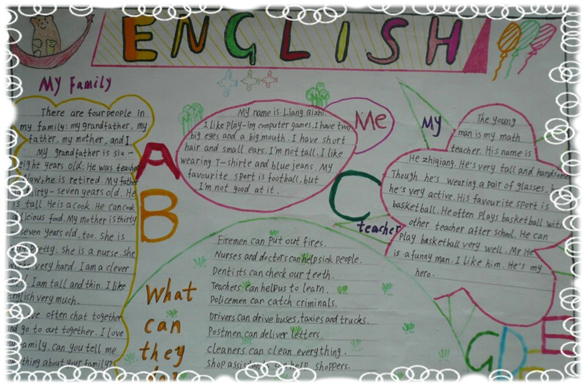 ENGLISH
My Family
There are four people in
my family: my grandfather, my
father, my mother, and I
My grandfather is six-
eight years old. He was teacher
now, he is retired. My father
thirty-seven years old. He
is tall. He is a cook. He can cook
licious food. My mother is thirty
seven years old, too. she is
pretty. she is a nurse. she
very hard. I am a clever
I am tall and thin. I like
english very much.
We often chat together
and go to out together. I love
family. Can you tell me
thing about your family?
A
B
Me
My name is Liang
I like Play-ing computer games. I have two
big eyes and a big mouth. I have short
hair and small ears. I'm not tall. I like
wearing T-shirte and blue jeans. My
favourite sport is football, but
I'm not good at it.
C
My
teacher
The young
man is my math
teacher. His name is
He zhiqiang. He's very tall and handsome
Though he's wearing a pair of glasses, b
he's very active. His favourite sport is
basketball. He often Plays basketball with
other teacher after school. He can
Play basketball very well. Mr He
is a funny man. I like him. He's my
hero.
What
can
they
do?
Firemen can put out fires.
Nurses and doctors can help sick people.
Dentists can check our teeth.
Teachers can help us to learn.
Policemen can catch criminals.
Drivers can drive buses, taxies and trucks.
Postmen can deliver letters.
cleaners can clean everything.
shop help shoppers.
G
D
E